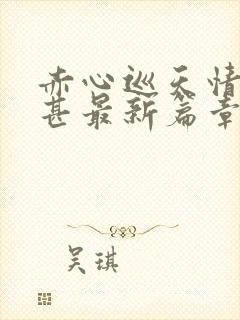 赤心巡天情
甚最新篇章
吴琪